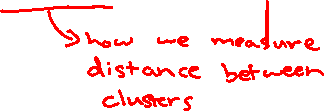 how we measure
distance between
clusters